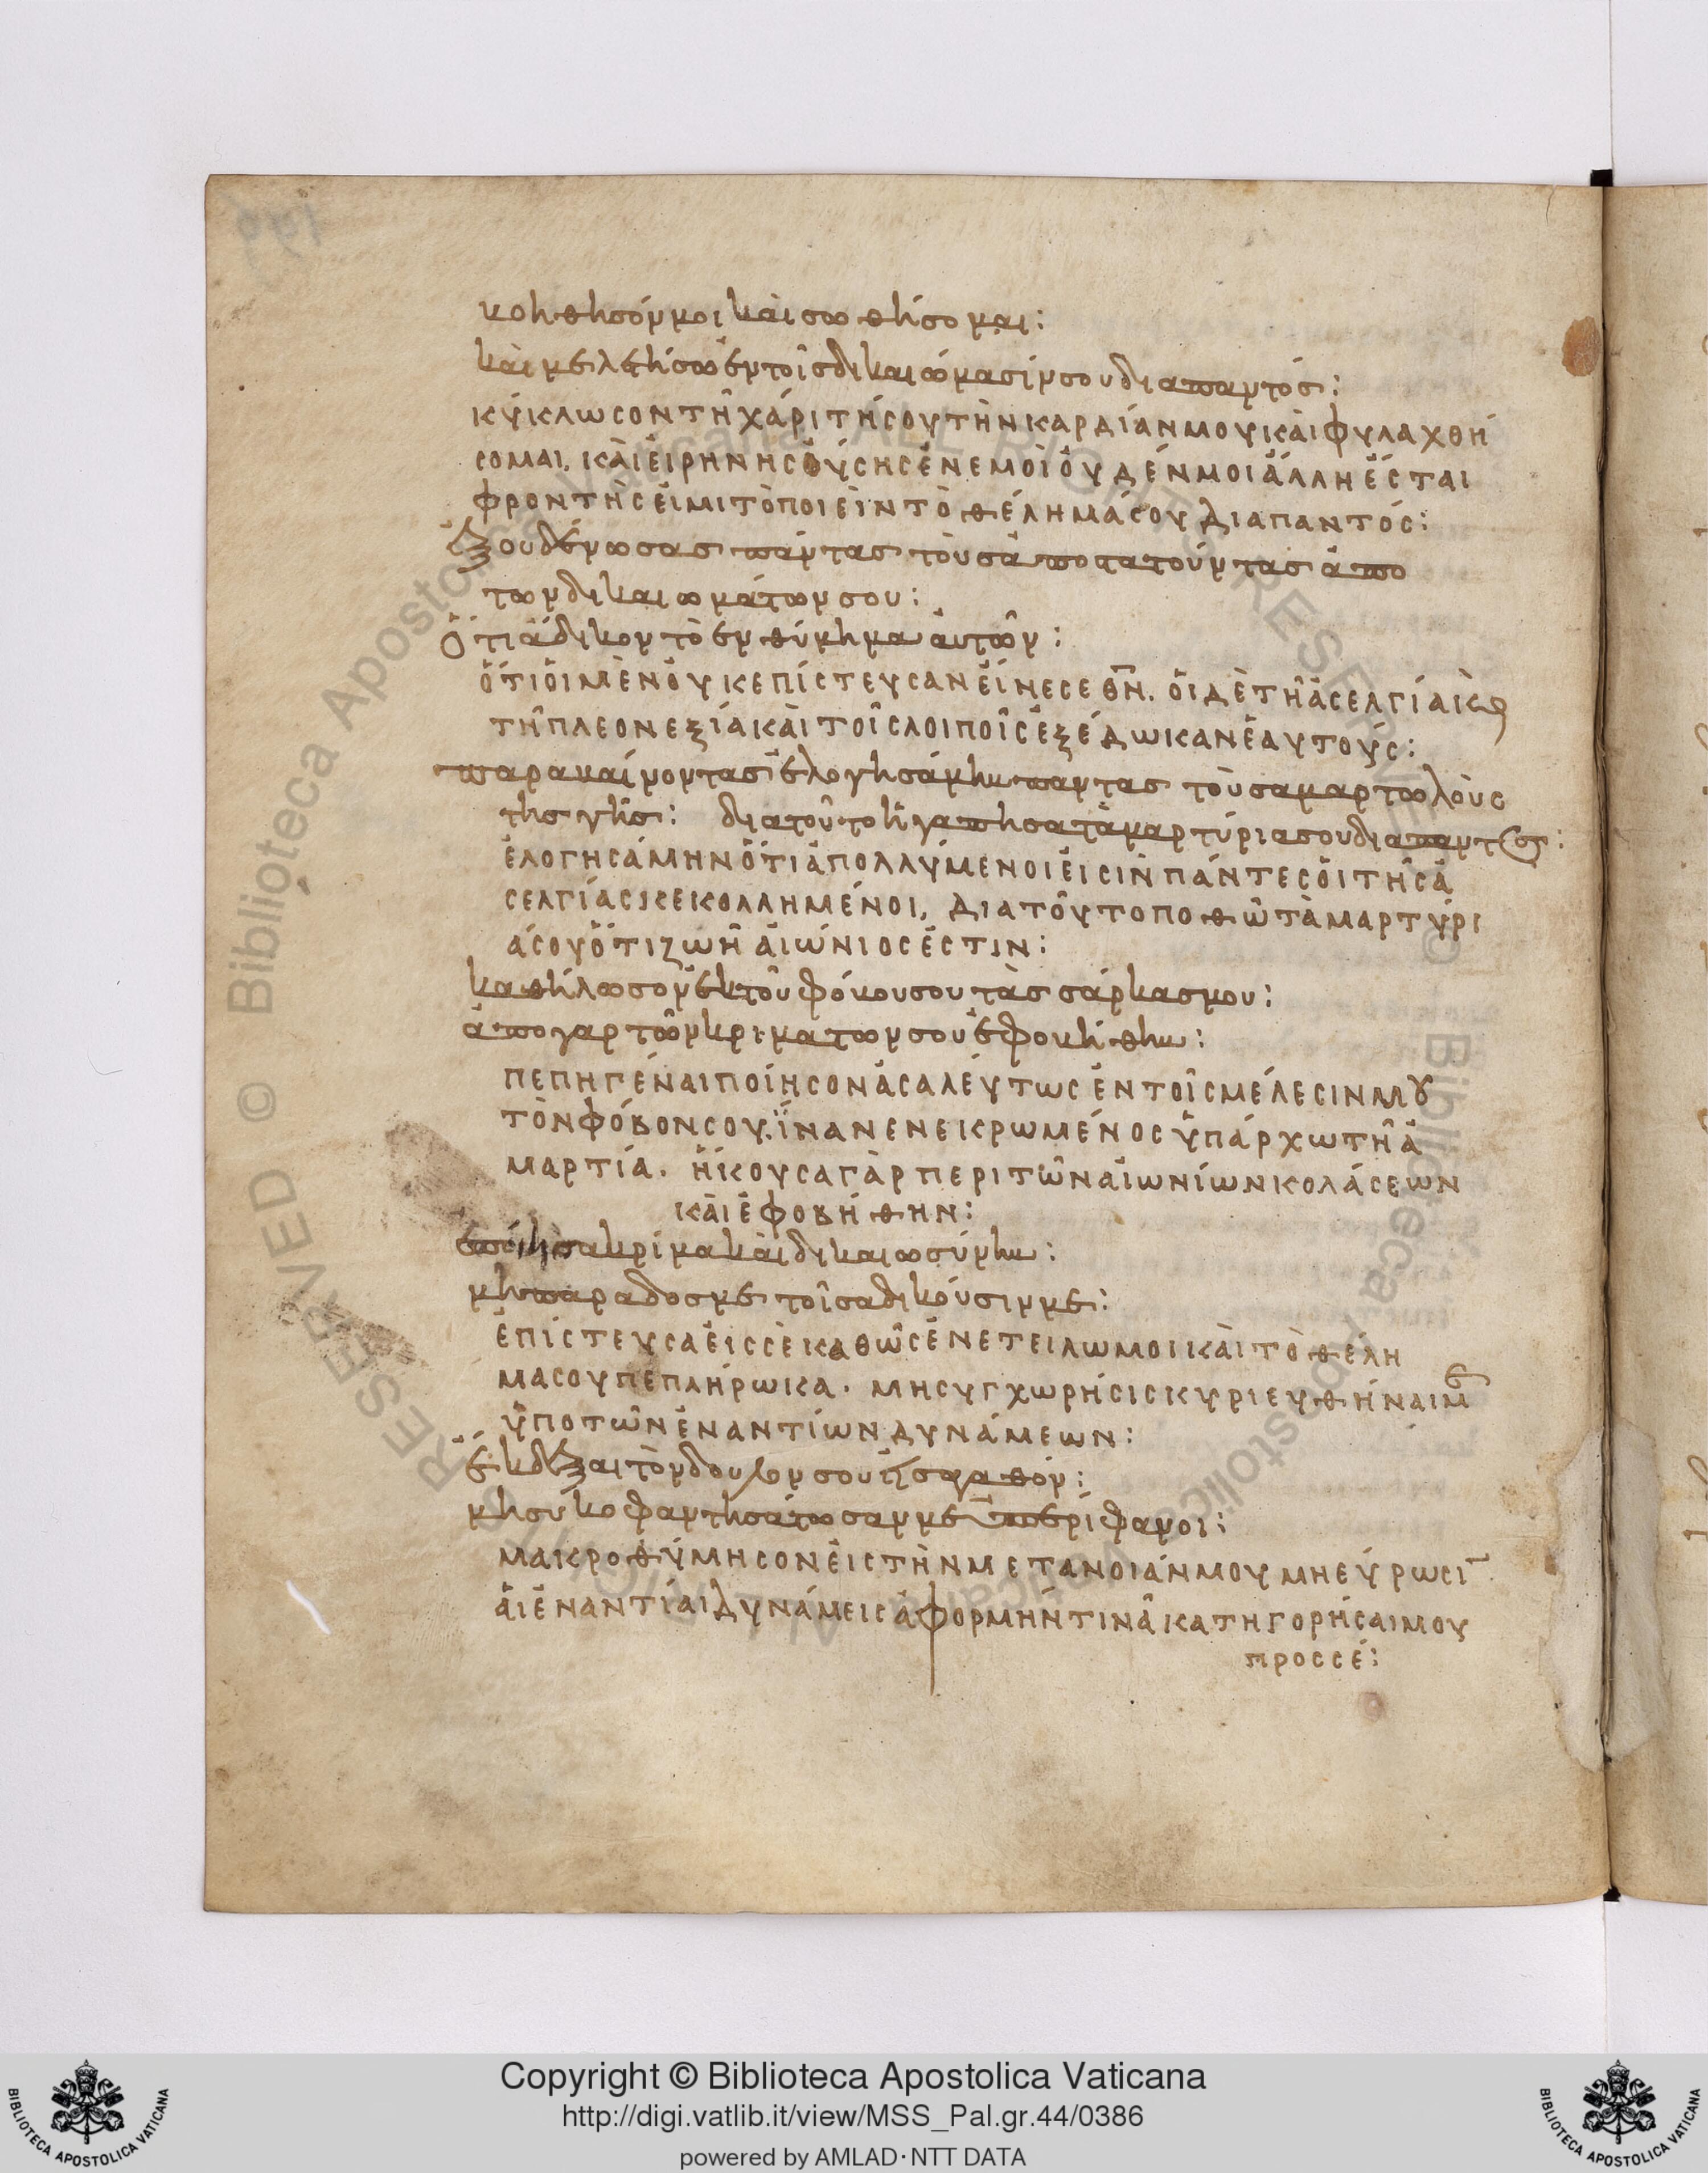 κοηθησόν μοι καὶ σωθήσομαι:
καὶ μελετήσω ἐν τοῖς δικαιώμασίν σου διαπαντός:
κύκλωσον τῆ χάριτή σου τὴν καρδίαν μου καὶ φυλαχθή
σομαι. καὶ εἰρηνης οὔσης ἐν εμοὶ οὐδέν μοι ἄλλη ἔσται
φροντὴς εἰμι τὸ ποιεῖν τὸ θέλημά σου διαπαντός:
ἐξουδένωσας πάντας τοὺς ἀποστατούντας ἀπο
των δικαιωμάτων σου:
Ὅτι ἄδικον τὸ ενθύμημα αὐτῶν:
ὅτι οἱ μὲν οὐκ επίστευσαν εἶνε σε θν. οἱ δὲ τῆ ἀσελγία κς
τῆ πλεονεξία καὶ τοῖς λοιποῖς ἐξέδωκαν ἑαυτούς:
παραβαίνοντας ἐλογησάμην παντας τοὺς αμαρτωλοὺς
της γῆς: διατοῦτο ἠγαπησα τὰ μαρτύρια σου διαπαντος:
ἐλογησάμην ὅτι ἀπολλύμενοι εἰσιν πάντες οἱ τῆς ἀ
σελγίας κεκολλημένοι, διατοῦτο ποθῶ τὰ μαρτύρι
ά σου ὅτι ζωὴ αἰώνιος έστιν:
καθήλωσον ἐκ τοῦ φόβου σου τὰς σάρκας μου:
ἀπο γαρ τῶν κριματων σου ἐφοβήθην:
πεπηγέναι ποίησον ἀσαλεύτως ἐν τοῖς μέλεσιν μου
τὸν φόβον σου. ἵνα νενεικρωμένος ὑπάρχω τῆ ἁ
μαρτία. ἤκουσα γὰρ περι τῶν αἰωνίων κολάσεων
καὶ ἐφοβήθην:
ἐποίησα κρίμα καὶ δικαιοσύνην:
μη παραδος με τοῖς αδικούσιν με:
ἐπίστευσα εἰς σὲ καθὼς ἐνετείλω μοι καὶ τὸ θέλη
μα σου πεπλήρωκα. μη συγχωρήσις κυριευθήναι με
ὑπο τῶν ἐναντίων δυνάμεων:
Ἔκδεξαι τὸν δουλον σου εἰς αγαθόν:
μη συκοφαντησάτωσαν με ὑπερίφανοι:
μακροθύμησον εἰς τὴν μετανοιάν μου μη εύρωσι
αἱ ἐναντίαι δυνάμεις ἀφορμήν τινα κατηγορήσαι μου
προς σέ:
Copyright © Biblioteca Apostolica Vaticana
http://digi.vatlib.it/view/MSS_Pal.gr.44/0386
powered by AMLAD·NTT DATA